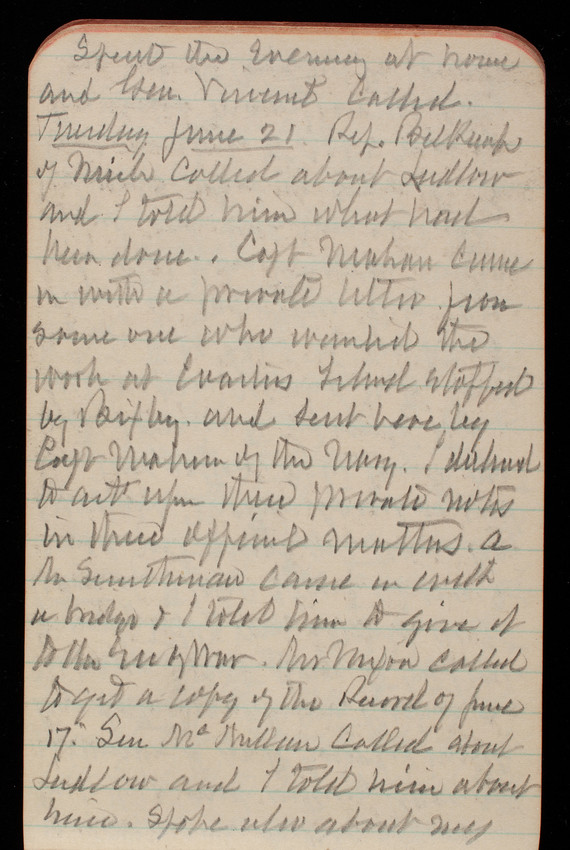 Spent the Evening at home
and Gen. Vincent Called.
Tuesday June 21. Rep. Belknap
of Mich Called about Ludlow
and I told him what had
been done. Capt Mahan came
in with a private letter from
some one who wanted the
work at Island stopped
by Bixby. and sent here by
Capt Mahan of the Navy. I declined
to act upon these private notes
in these official matters. a
Mr came in with
a bridge & I told him to give it
to the Sec of War. Mr Nixon called
to get a copy of the Record of June
17. Sen Mc Millan Called about
Ludlow and I told him about
him. Spoke also about my